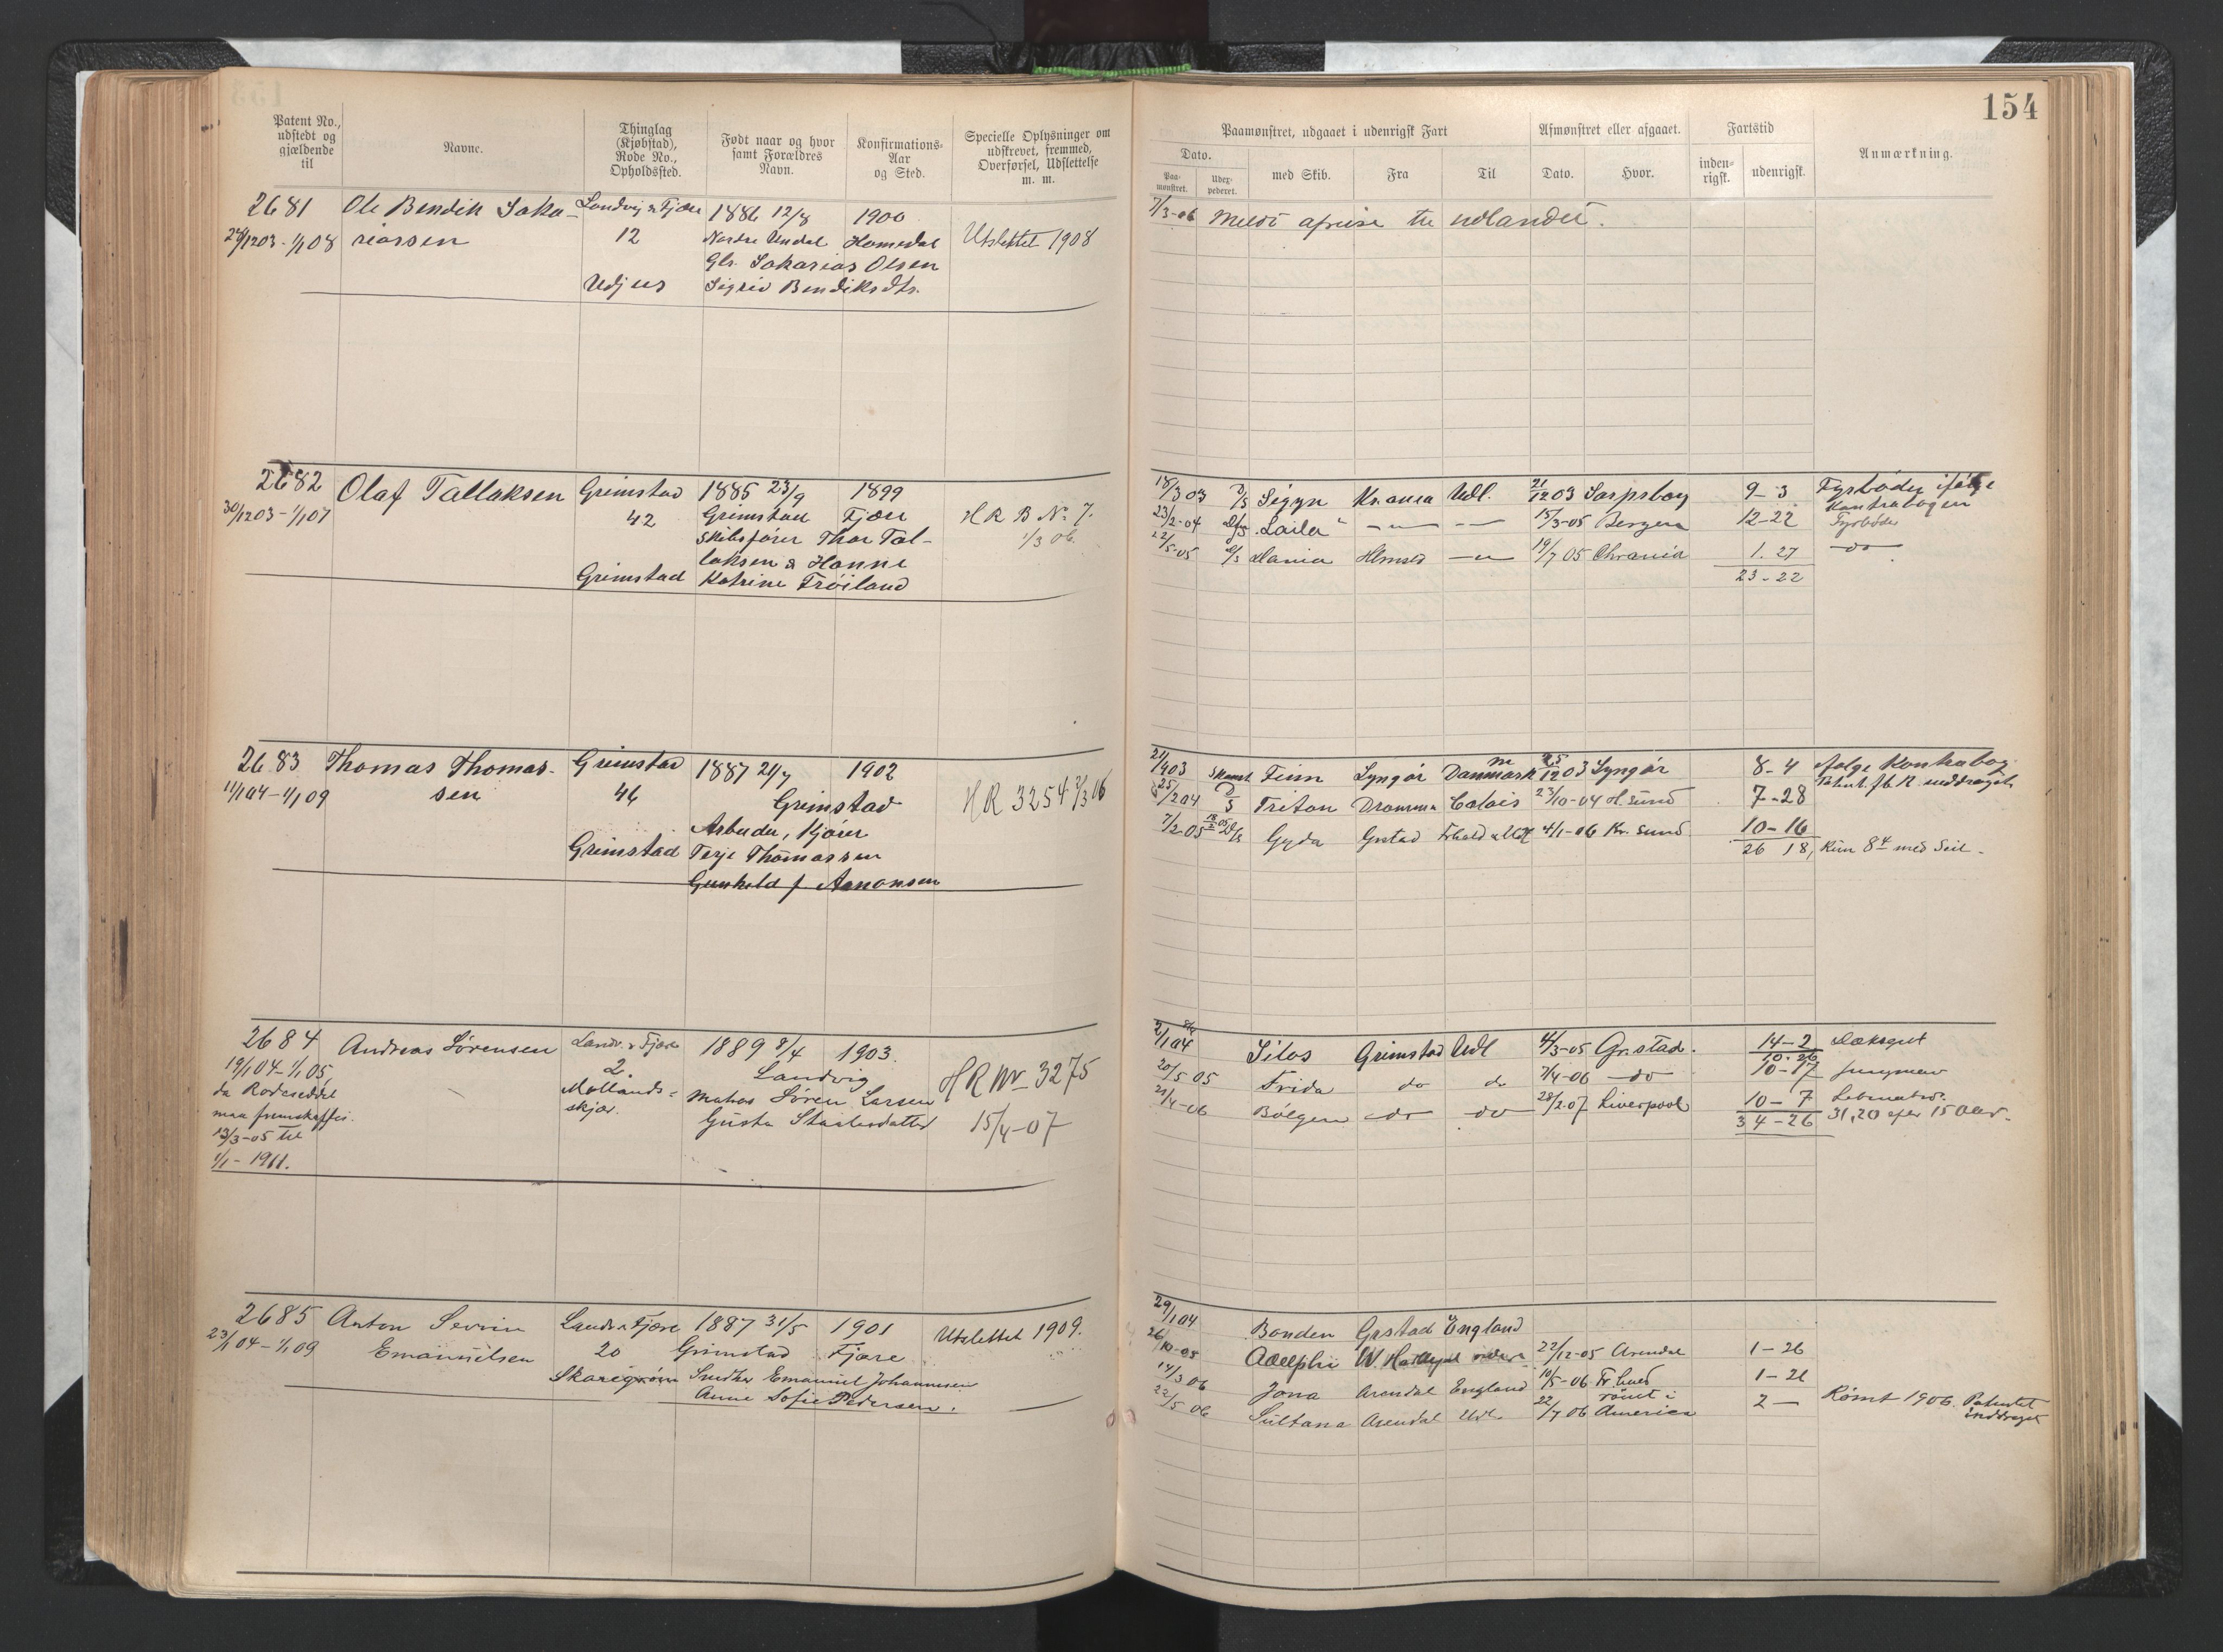 154
Patent No., udstedt og gjældende til
Navne.
Thinglag (Kjøbstad), Rode No., Opholdssted.
Født naar og hvor samt Forældres Navn.
Konfirmations-Aar og Sted.
Specielle Oplysninger om udskrevet, fremmed, Overførsel, Udslettelse m. m.
Paamønstret, udgaaet i udenrigsk Fart
Afmønstret eller afgaaet.
Fartstid
Anmærkning.
Dato.
Paa-mønstret.
Udex-pederet.
med Skib.
Fra
Til
Dato.
Hvor.
inden-rigsk.
udenrigsk.
2681 Ole Bendik Saka- Landvig & Fjære 1886 12/8 1900
1/1 08 riassen 12 Nordre Undal Homedal Utslettet 1908
Gbr. Sakarias Olsen
Udjus Sigrid Bendiksdtr.
7/3-06 Meldt afreise til udlandet.
2682 Olaf Tallaksen Grimstad 1885 23/9 1899
30/12 03 - 1/1 07 42 Grimstad Fjære H R B No 7.
Skibsfører Thor Tal- 1/3 06.
laksen & Hanne
Grimstad Katrine Frøiland
18/3 03 D/S Sigyn Kr.ania Udl. 21/12 03 Sarpsborg 9-3 Fyrbøder ifølge
Kontrabogen
23/2-04 D/S "Laila" -„- - 15/3-05 Bergen 12-22 Fyrbøder
22/5-05 D/S Hlmsd -„- 19/7 05 Chrania 1.27 -do-
23-22
2683 Thomas Thomas- Grimstad 1887 21/7 1902
11/1 04 - 1/1 09 sen 46 Grimstad H R 3254 16
Arbeider, Kjører
Grimstad Terje Thomassen
Gunhild f. Aanonsen
21/4 03 Finn Lyngør Danmark 25/12 03 Lyngør 8-4 ifølge Kontrabog
25/2 04 D/S Triton Drammen Calais 23/10-04 H.sund 7-28
7/2 05 D/S Gyda Gstad 4/1-06 Kr. sund 10-16
26 18, Kun 8 4 med Seil.
2684 Andreas Sørensen Landv. & Fjære 1889 8/4 1903.
19/1 04 - 1/1 05 2. Landvig H R Nr 3275
da Rodeseddel Mollands- Matros Søren Larsen
maa fremskaffes. skjær. Gusta 15/4-07
13/3-05 til
1/1-1911.
2/1 04 Silos Grimstad Udl 4/3-05 Grstad. 14-2 Dæksgut
10-26
20/5 05 Frida do do 7/4-06 -do- 10-17 Jungmand
21/4-06 Bølgen -do- do 28/2.07 Liverpool 10-7
34-26 31,20 efter 15 Aar.
2685 Anton Sevrin Landv. & Fjære 1887 31/5 1901 Utslettet 1909.
23/1 04 - 1/1 09 Emanuelsen 20 Grimstad Fjære
Skaregrøm Emanuel Johannesen
Anne Sofie Pedersen.
29/1 04 Bonden Grstad England
26/10-05 Adelphi W. Hartlepol 22/12-05 Arendal 1-26
14/3 06 Jona Arendal England 10/5-06 1-26
22/5 06 Sultana Arendal Udl. 22/7 06 rømt i America 2 - Rømt 1906. Patentet inddraget